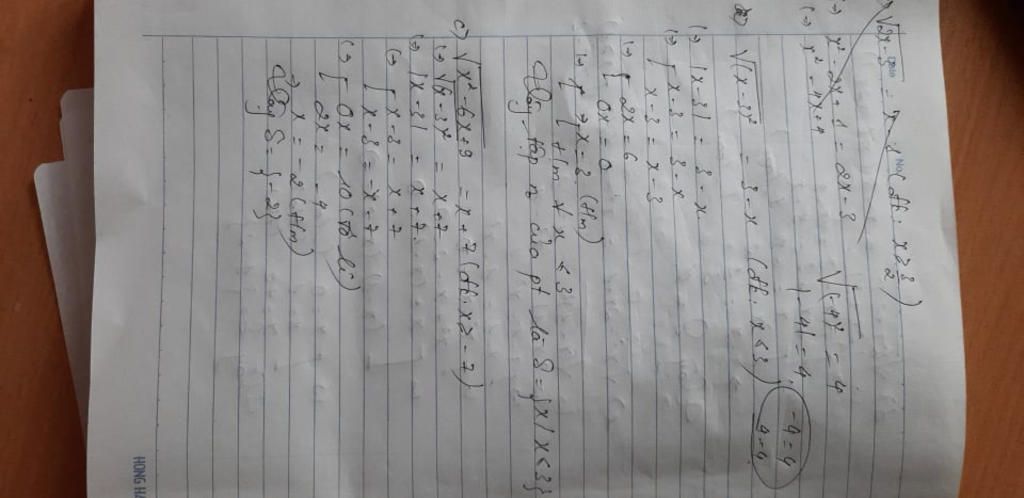 √2x-3 = x-1 (đk: x ≥ 3/2)
(=) x² - 2x + 1 = 2x - 3
(=) x² - 4x + 4
√(-4)² = 4
|-4| = 4
-4 = 4
4 = 4
b) √(x-3)² = 3-x (đk: x ≤ 3)
(=) |x-3| = 3-x
(=) [ x-3 = 3-x
x-3 = x-3
(=) [ 2x = 6
0x = 0
(=) [ x = 3 (t/m)
t/m ∀x ≤ 3
Vậy tập n° của pt là S = {x/x ≤ 3}
c) √x²-6x+9 = x+7 (đk: x ≥ -7)
(=) √(x-3)² = x+7
(=) |x-3| = x+7
(=) [ x-3 = x+7
x-3 = -x-7
(=) [ 0x = 10 (vô lí)
2x = -4
=) x = -2 (t/m)
Vậy S = {-2}
HONG HA